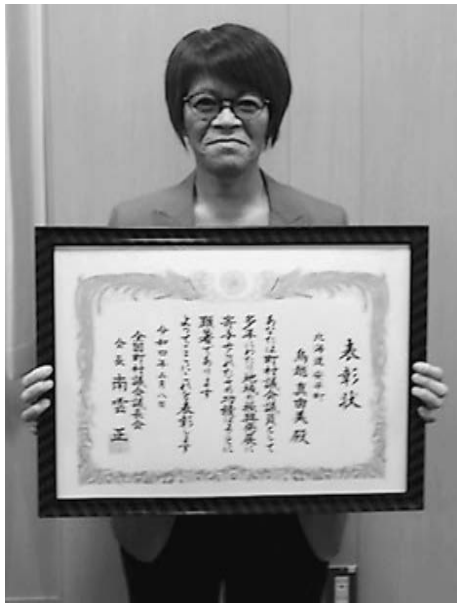 表彰状
北海道安平町
鳥越真由美殿
あなたは町村議会議員として
多年にわたり地域の振興発展に
寄与せられたその功績はまことに
顕著であります
よってここにこれを表彰します
令和四年二月八日
全国町村議会議長会
会長 南雲 正